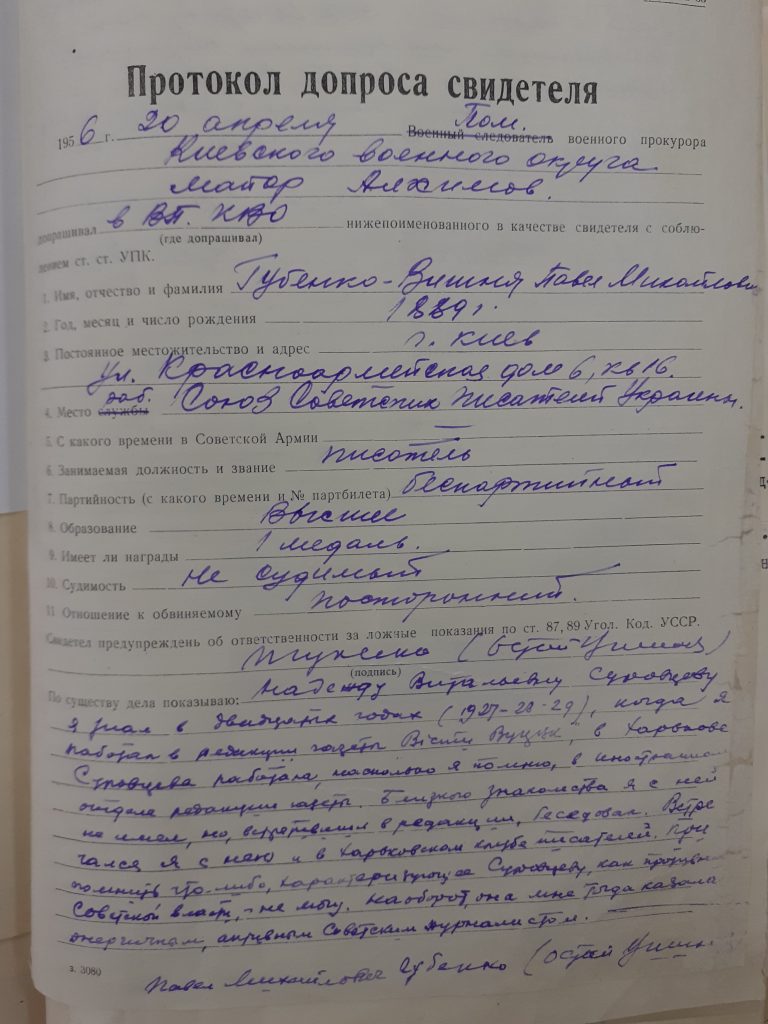 Протокол допроса свидетеля
Пом.
1956 г. 20 апреля Военный следователь военного прокурора
Киевского военного округа
майор Алхимов.
допрашивал в ВП. КВО нижепоименованного в качестве свидетеля с соблю-
(где допрашивал)
дением ст. ст. УПК.
1. Имя, отчество и фамилия Губенко-Вишня Павел Михайлович
2. Год, месяц и число рождения 1889 г.
3. Постоянное местожительство и адрес г. Киев
ул. Красноармейская дом 6, кв 16.
раб.
4. Место службы Союз Советских писателей Украины.
5. С какого времени в Советской Армии —
6. Занимаемая должность и звание писатель
7. Партийность (с какого времени и № партбилета) беспартийный
8. Образование Высшее
9. Имеет ли награды 1 медаль.
10. Судимость не судимый
11 Отношение к обвиняемому посторонний.
Свидетел предупрежден об ответственности за ложные показания по ст. 87, 89 Угол. Код. УССР.
(Остап Вишня)
(подпись)
По существу дела показываю: Надежду Витальевну Суровцеву
я знал в двадцатых годах (1927-28-29), когда я
работал в редакции газеты "Вісти Вуцвк", в Харькове
Суровцева работала, насколько я помню, в иностранном
отделе редакции газеты. Близкого знакомства я с ней
не имел, но, встретившись в редакции, беседовал. Встре
чался я с нею и в Харьковском клубе писателей. При
помнить что-либо, характеризующее Суровцеву, как
Советской власти, – не могу. Наоборот, она мне тогда казала
энергичным, активным Советским журналистом.
з. 3080
Павел Михайлович Губенко (Остап Вишн